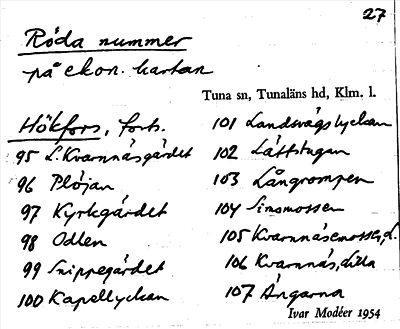 27
Röda nummer
på ekon. kartan
Tuna sn, Tunaläns hd, Klm. l.
Hökfors, forts.
95 L. Kvarnnäsgärdet
96 Plöjan
97 Kyrkgärdet
98 Odlen
99 Snippegärdet
100 Kapellyckan
101 Landsvägslyckan
102 Lättstugan
103 Långrompen
104 Simsmossen
105 Kvarnnäsemosse, L.
106 Kvarnnäs, Lilla
107 Ängarna
Ivar Modéer 1954